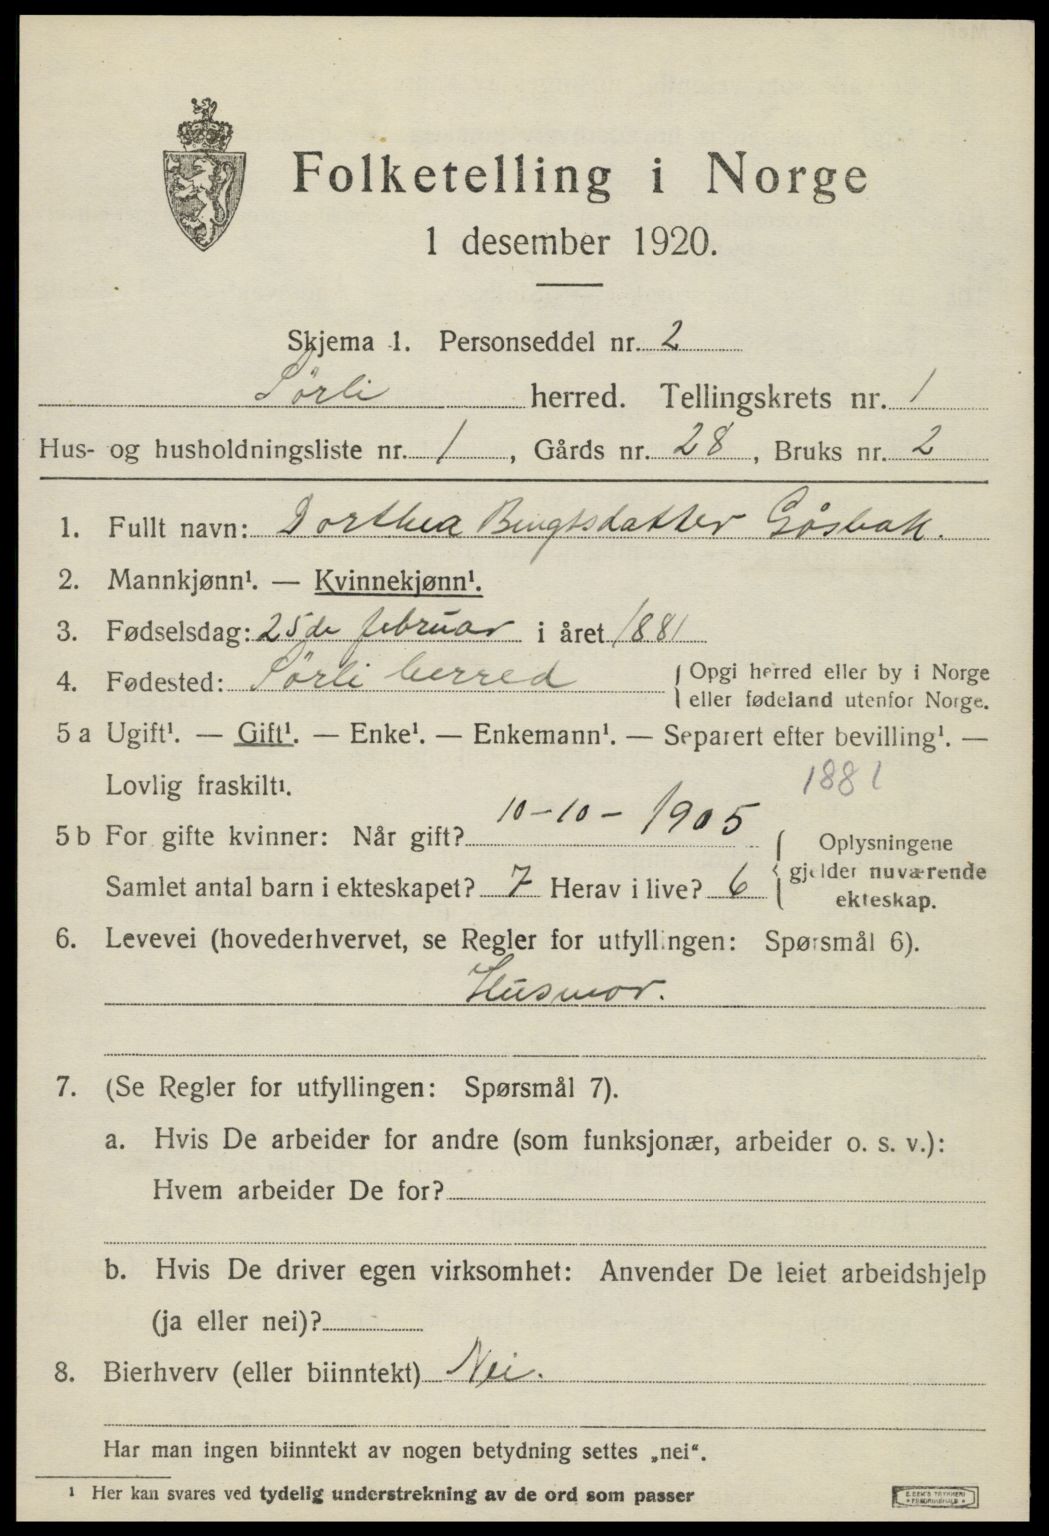 Folketelling i Norge
1 desember 1920.
Skjema 1. Personseddel nr. 2
Sörli herred. Tellingskrets nr. 1
Hus- og husholdningsliste nr. 1, Gårds nr. 28, Bruks nr. 2
1. Fullt navn: Dorthea Bengtsdatter Gåsbak.
2. Mannkjønn¹. — Kvinnekjønn¹.
3. Fødselsdag: 25de februar i året 1881
4. Fødested: Sörli herred { Opgi herred eller by i Norge
eller fødeland utenfor Norge.
5 a Ugift¹. — Gift¹. — Enke¹. — Enkemann¹. — Separert efter bevilling¹. —
Lovlig fraskilt¹. 1881
5 b For gifte kvinner: Når gift? 10-10-1905 { Oplysningene
Samlet antal barn i ekteskapet? 7 Herav i live? 6 gjelder nuværende
ekteskap.
6. Levevei (hovederhvervet, se Regler for utfyllingen: Spørsmål 6).
Husmor.
7. (Se Regler for utfyllingen: Spørsmål 7).
a. Hvis De arbeider for andre (som funksjonær, arbeider o. s. v.):
Hvem arbeider De for?
b. Hvis De driver egen virksomhet: Anvender De leiet arbeidshjelp
(ja eller nei)?
8. Bierhverv (eller biinntekt) Nei.
Har man ingen biinntekt av nogen betydning settes „nei“.
¹ Her kan svares ved tydelig understrekning av de ord som passer